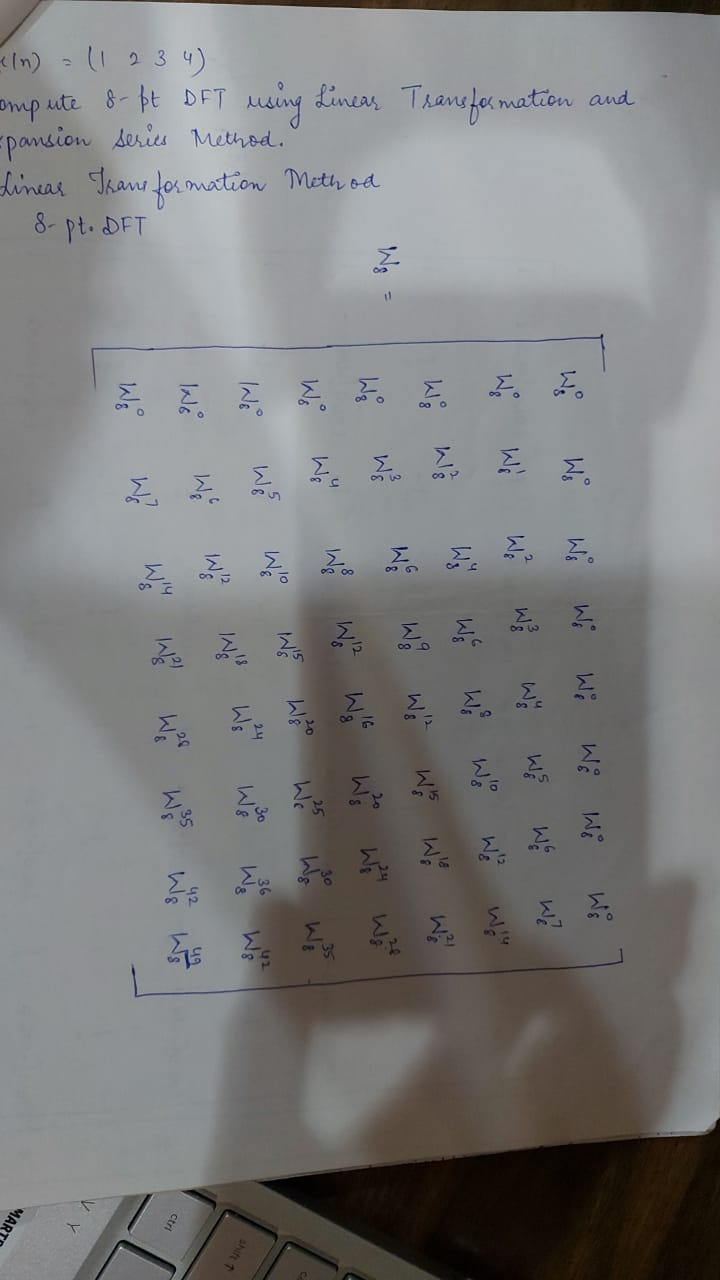 x(n) = (1 2 3 4)
ompute 8-pt DFT using Linear Transformation and
pansion series Method.
Linear Transformation Method
8-pt. DFT
W₈ =
W₈⁰ W₈⁰ W₈⁰ W₈⁰ W₈⁰ W₈⁰ W₈⁰ W₈⁰
W₈⁰ W₈¹ W₈² W₈³ W₈⁴ W₈⁵ W₈⁶ W₈⁷
W₈⁰ W₈² W₈⁴ W₈⁶ W₈⁸ W₈¹⁰ W₈¹² W₈¹⁴
W₈⁰ W₈³ W₈⁶ W₈⁹ W₈¹² W₈¹⁵ W₈¹⁸ W₈²¹
W₈⁰ W₈⁴ W₈⁸ W₈¹² W₈¹⁶ W₈²⁰ W₈²⁴ W₈²⁸
W₈⁰ W₈⁵ W₈¹⁰ W₈¹⁵ W₈²⁰ W₈²⁵ W₈³⁰ W₈³⁵
W₈⁰ W₈⁶ W₈¹² W₈¹⁸ W₈²⁴ W₈³⁰ W₈³⁶ W₈⁴²
W₈⁰ W₈⁷ W₈¹⁴ W₈²¹ W₈²⁸ W₈³⁵ W₈⁴² W₈⁴⁹
ctrl
shift ↑